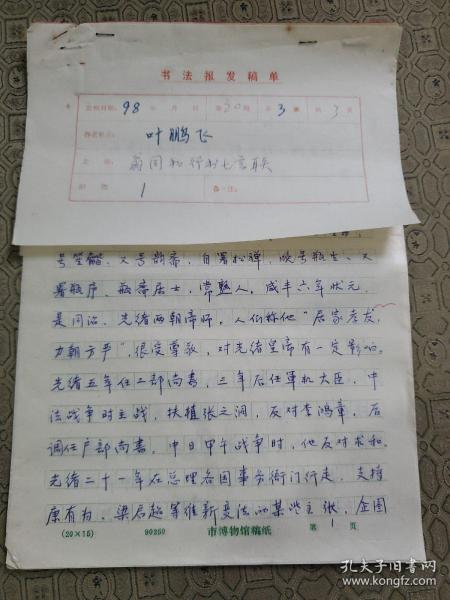 书法报发稿单
发稿日期: 98年 月 日 第30期 第3版 第3页
作者姓名: 叶鹏飞
文 翁同和行书七言联
1 备注:
号笙龢、又号韵斋,自署松禅,晚号瓶生、又
署瓶庐、瓶斋居士,常熟人,咸丰六年状元,
是同治、光绪两朝帝师,人们称他“居家孝友,
立朝方严”,很受尊敬,对光绪皇帝有一定影响。
光绪五年任工部尚书,三年后任军机大臣,中
法战争时主战,扶植张之洞,反对李鸿章,后
调任户部尚书,中日甲午战争时,他反对求和。
光绪二十一年在总理各国事务衙门行走,支持
康有为、梁启超等维新变法的某些主张,企图
(20×15) 90250 市博物馆稿纸 第1页
孔夫子旧书网
www.kongfz.com